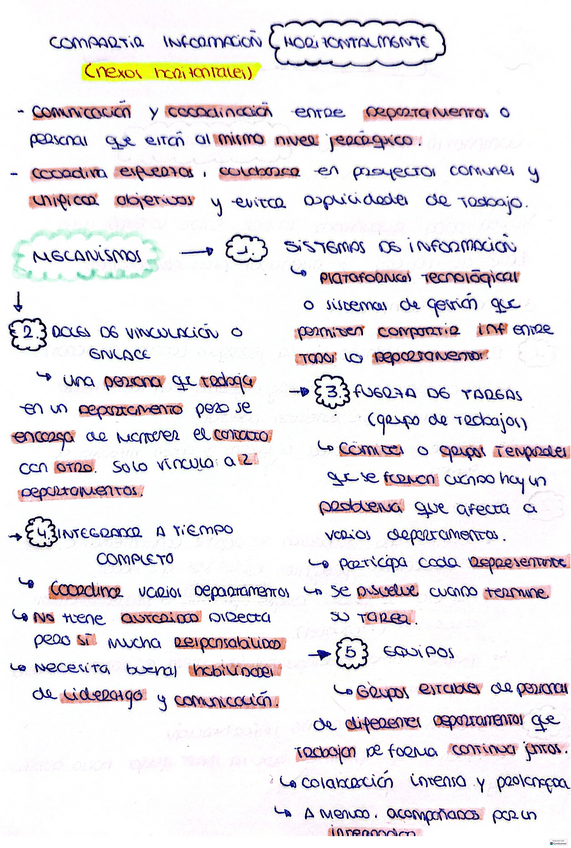 COMPARTIR INFORMACIÓN HORIZONTALMENTE
(nexos horizontales)
- comunicación y coordinación entre departamentos o
personal que están al mismo nivel jerárgico.
- coordina esfuerzos, colabora en proyectos comunes y
unificar objetivos y evitar duplicidades de trabajo.
MECANISMOS → 1. SISTEMAS DE INFORMACIÓN
↳ plataformas tecnológicas
o sistemas de gestión que
permiten compartir inf entre
todos los departamentos.
2. ROLES DE VINCULACIÓN O
ENLACE
↳ una persona que trabaja
en un departamento pero se
encarga de mantener el contacto
con otro. Solo vincula a 2
departamentos.
→ 3. FUERZA DE TAREAS
(grupo de trabajos)
↳ Cómites o grupos temporales
que se forman cuando hay un
problema que afecta a
varios departamentos.
↳ participa cada representante
↳ se disuelve cuando termine
su tarea.
→ 4. INTEGRADOR A TIEMPO
COMPLETO
↳ Coordina varios departamentos
↳ No tiene autoridad directa
pero sí mucha responsabilidad
↳ necesita buenas habilidades
de liderazgo y comunicación.
→ 5 EQUIPOS
↳ Grupos estables de personas
de diferentes departamentos que
trabajan de forma continua juntos.
↳ colaboración intensa y prolongada
↳ A menudo, acompañados por un
integrador